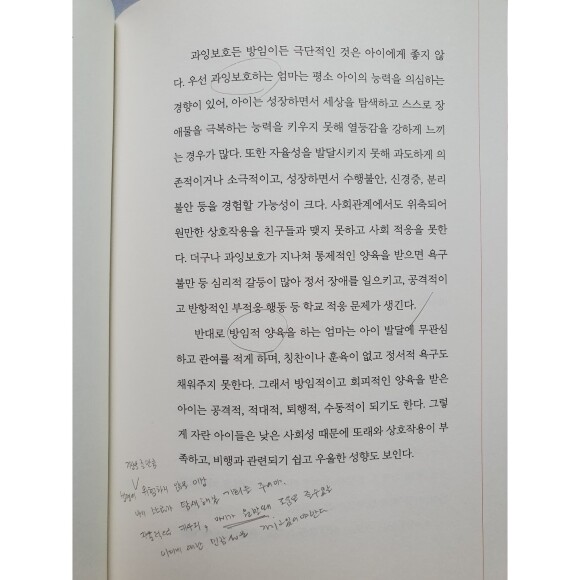 과잉보호든 방임이든 극단적인 것은 아이에게 좋지 않
다. 우선 과잉보호하는 엄마는 평소 아이의 능력을 의심하는
경향이 있어, 아이는 성장하면서 세상을 탐색하고 스스로 장
애물을 극복하는 능력을 키우지 못해 열등감을 강하게 느끼
는 경우가 많다. 또한 자율성을 발달시키지 못해 과도하게 의
존적이거나 소극적이고, 성장하면서 수행불안, 신경증, 분리
불안 등을 경험할 가능성이 크다. 사회관계에서도 위축되어
원만한 상호작용을 친구들과 맺지 못하고 사회 적응을 못한
다. 더구나 과잉보호가 지나쳐 통제적인 양육을 받으면 욕구
불만 등 심리적 갈등이 많아 정서 장애를 일으키고, 공격적이
고 반항적인 부적응 행동 등 학교 적응 문제가 생긴다.
반대로 방임적 양육을 하는 엄마는 아이 발달에 무관심
하고 관여를 적게 하며, 칭찬이나 훈육이 없고 정서적 욕구도
채워주지 못한다. 그래서 방임적이고 회피적인 양육을 받은
아이는 공격적, 적대적, 퇴행적, 수동적이 되기도 한다. 그렇
게 자란 아이들은 낮은 사회성 때문에 또래와 상호작용이 부
족하고, 비행과 관련되기 쉽고 우울한 성향도 보인다.
위험하지 않은 이상